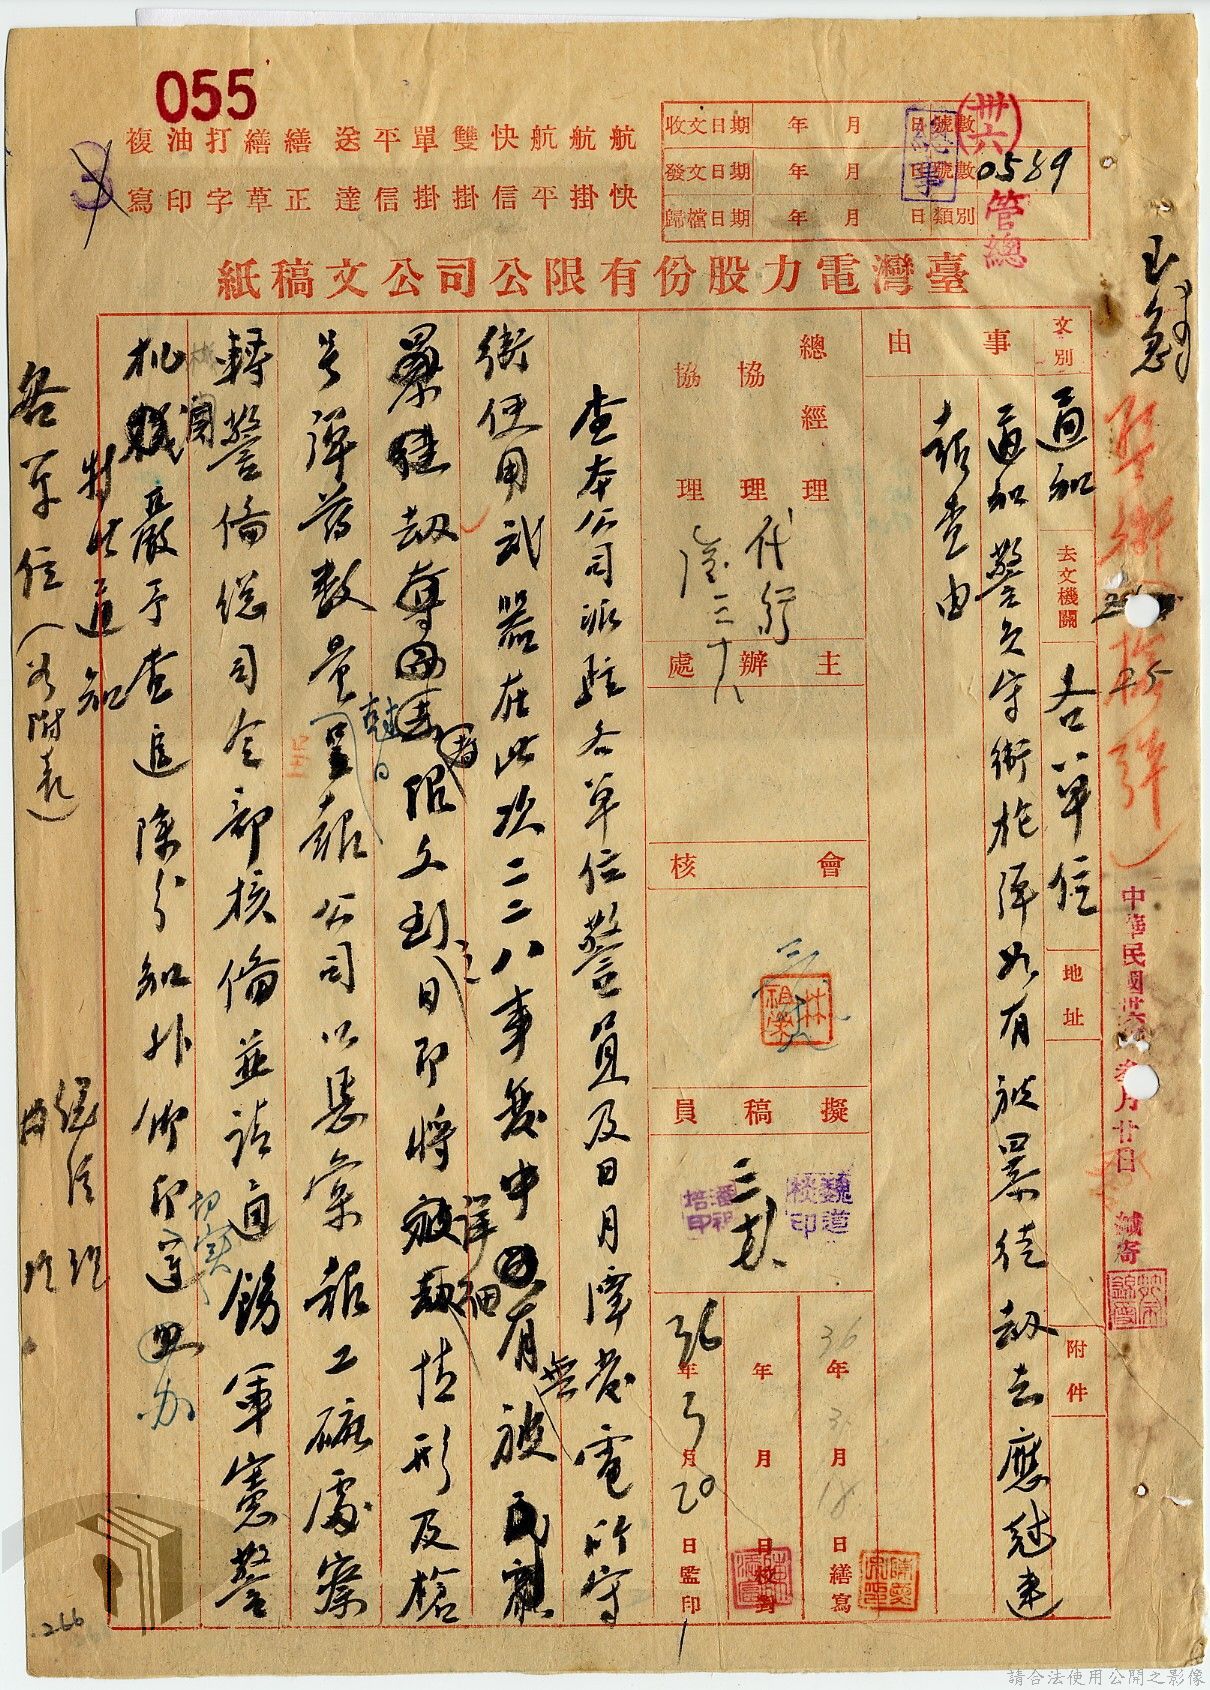 055
複油打繕繕 送平單雙快航航航
寫印字草正 達信掛掛信平掛快
收文日期 年 月 日 號數
發文日期 年 月 日 號數 0589
歸檔日期 年 月 日 類別
總事
(卅六)
管總
臺灣電力股份有限公司公文稿紙
文別 通知
去文機關 各單位
地址
附件
事由
通知警員守衛槍彈如有被暴徒劫去應速
報查由
總經理
協理 代行
協理
主辦處
會核
擬稿員
36年3月18日繕寫
年 月 日校對
36年3月20日監印
查本公司派駐各單位警員及日月潭發電所守
衛使用武器在此次二二八事變中有無被
暴徒劫奪者限文到之日即將詳細情形及槍
號彈藥數量剋日呈報公司以憑彙報工礦處察
轉警備總司令部核備並請通飭軍憲警
機關嚴予查追除分知外仰即切實遵照办
特此通知
各單位(如附表)
總經理
協理
中華民國卅六年叁月廿日 緘寄
.266
請合法使用公開之影像